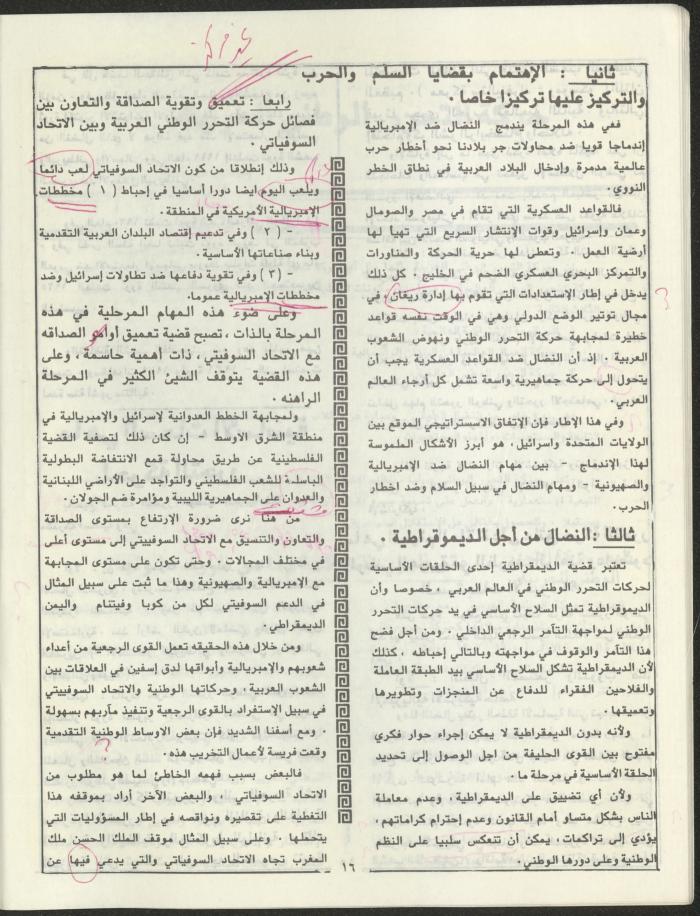 ثانيا : الإهتمام بقضايا السلم والحرب
والتركيز عليها تركيزا خاصا .
ففي هذه المرحلة يندمج النضال ضد الإمبريالية
إندماجا قويا ضد محاولات جر بلادنا نحو أخطار حرب
عالمية مدمرة وإدخال البلاد العربية في نطاق الخطر
النووي .
فالقواعد العسكرية التي تقام في مصر والصومال
وعمان وإسرائيل وقوات الإنتشار السريع التي تهيأ لها
أرضية العمل . وتعطى لها حرية الحركة والمناورات
والتمركز البحري العسكري الضخم في الخليج . كل ذلك
يدخل في إطار الإستعدادات التي تقوم بها إدارة ريغان . في
مجال توتير الوضع الدولي وهي في الوقت نفسه قواعد
خطيرة لمجابهة حركة التحرر الوطني ونهوض الشعوب
العربية . إذ أن النضال ضد القواعد العسكرية يجب أن
يتحول إلى حركة جماهيرية واسعة تشمل كل أرجاء العالم
العربي .
وفي هذا الإطار فإن الإتفاق الاسستراتيجي الموقع بين
الولايات المتحدة واسرائيل، هو أبرز الأشكال الملموسة
لهذا الإندماج – بين مهام النضال ضد الإمبريالية
والصهيونية – ومهام النضال في سبيل السلام وضد اخطار
الحرب .
ثالثا : النضال من أجل الديموقراطية .
تعتبر قضية الديمقراطية إحدى الحلقات الأساسية
لحركات التحرر الوطني في العالم العربي ، خصوصا وأن
الديموقراطية تمثل السلاح الأساسي في يد حركات التحرر
الوطني لمواجهة التآمر الرجعي الداخلي . ومن أجل فضح
هذا التآمر والوقوف في مواجهته وبالتالي إحباطه ، كذلك
لأن الديمقراطية تشكل السلاح الأساسي بيد الطبقة العاملة
والفلاحين الفقراء للدفاع عن المنجزات وتطويرها
وتعميقها .
ولأنه بدون الديمقراطية لا يمكن إجراء حوار فكري
مفتوح بين القوى الحليفة من اجل الوصول إلى تحديد
الحلقة الأساسية في مرحلة ما .
ولأن أي تضييق على الديمقراطية، وعدم معاملة
الناس بشكل متساو أمام القانون وعدم إحترام كراماتهم ،
يؤدي إلى تراكمات، يمكن أن تنعكس سلبيا على النظم
الوطنية وعلى دورها الوطني .
رابعا : تعميق وتقوية الصداقة والتعاون بين
فصائل حركة التحرر الوطني العربية وبين الاتحاد
السوفياتي .
وذلك إنطلاقا من كون الاتحاد السوفياتي لعب دائما
ويلعب اليوم ايضا دورا أساسيا في إحباط ( ١ ) مخططات
الإمبريالية الأمريكية في المنطقة .
– ( ٢ ) وفي تدعيم إقتصاد البلدان العربية التقدمية
وبناء صناعاتها الأساسية .
– ( ٣ ) وفي تقوية دفاعها ضد تطاولات إسرائيل وضد
مخططات الإمبريالية عموما .
وعلى ضوء هذه المهام المرحلية في هذه
المرحلة بالذات ، تصبح قضية تعميق أوامو الصداقه
مع الاتحاد السوفيتي ، ذات أهمية حاسمة ، وعلى
هذه القضية يتوقف الشيئ الكثير في المرحلة
الراهنه .
ولمجابهة الخطط العدوانية لإسرائيل والإمبريالية في
منطقة الشرق الاوسط – إن كان ذلك لتصفية القضية
الفلسطينية عن طريق محاولة قمع الانتفاضة البطولية
الباسلة للشعب الفلسطيني والتواجد على الأراضي اللبنانية
والعدوان على الجماهيرية الليبية ومؤامرة ضم الجولان .
من هنا نرى ضرورة الإرتفاع بمستوى الصداقة
والتعاون والتنسيق مع الاتحاد السوفييتي إلى مستوى أعلى
في مختلف المجالات . وحتى تكون على مستوى المجابهة
مع الإمبريالية والصهيونية وهذا ما ثبت على سبيل المثال
في الدعم السوفيتي لكل من كوبا وفيتنام واليمن
الديمقراطي .
ومن خلال هذه الحقيقه تعمل القوى الرجعية من أعداء
شعوبهم والإمبريالية وأبواقها لدق إسفين في العلاقات بين
الشعوب العربية ، وحركاتها الوطنية والاتحاد السوفييتي
في سبيل الإستفراد بالقوى الرجعية وتنفيذ مآربهم بسهولة
. ومع أسفنا الشديد فإن بعض الاوساط الوطنية التقدمية
وقعت فريسة لأعمال التخريب هذه .
فالبعض بسبب فهمه الخاطئ لما هو مطلوب من
الاتحاد السوفياتي ، والبعض الآخر أراد بموقفه هذا
التغطية على تقصيره ونواقصه في إطار المسؤوليات التي
يتحملها . وعلى سبيل المثال موقف الملك الحسن ملك
المغرب تجاه الاتحاد السوفياتي والتي يدعي فيها عن
١٦